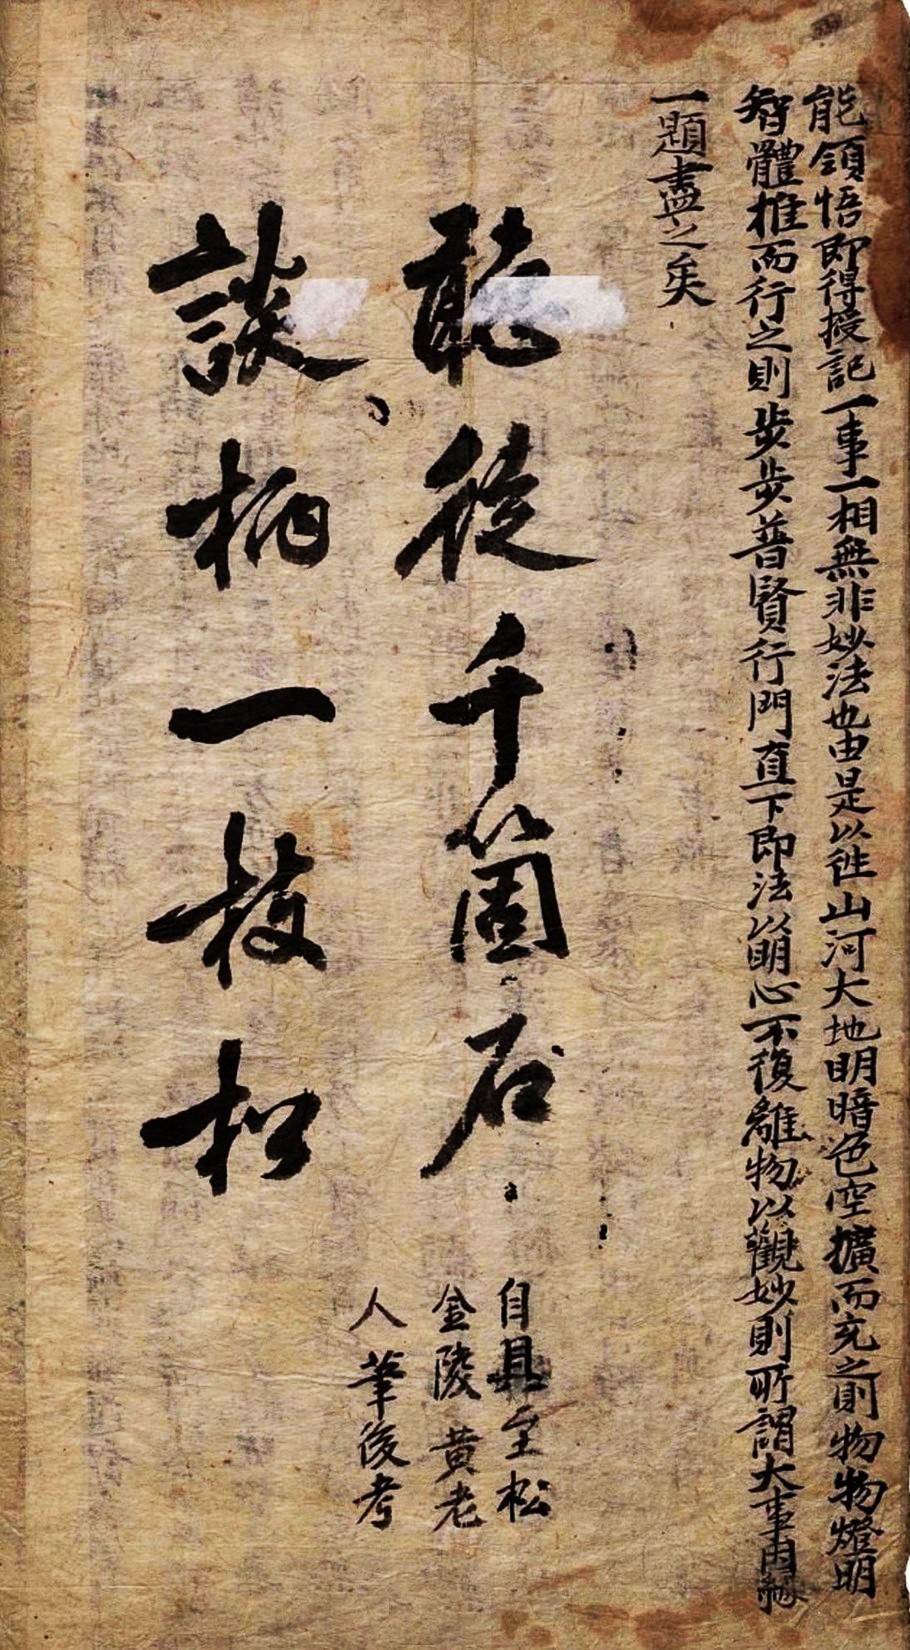 能領悟即得授記一事一相無非妙法也由是以往山河大地明暗色空擴而充之則物物燈明
智體推而行之則步步普賢行門直下即法以明心不復離物以觀妙則所謂大事因緣
一題盡之矣
聽徒千箇石
談柄一枝松
自具至松
金陵黃老
人筆後考